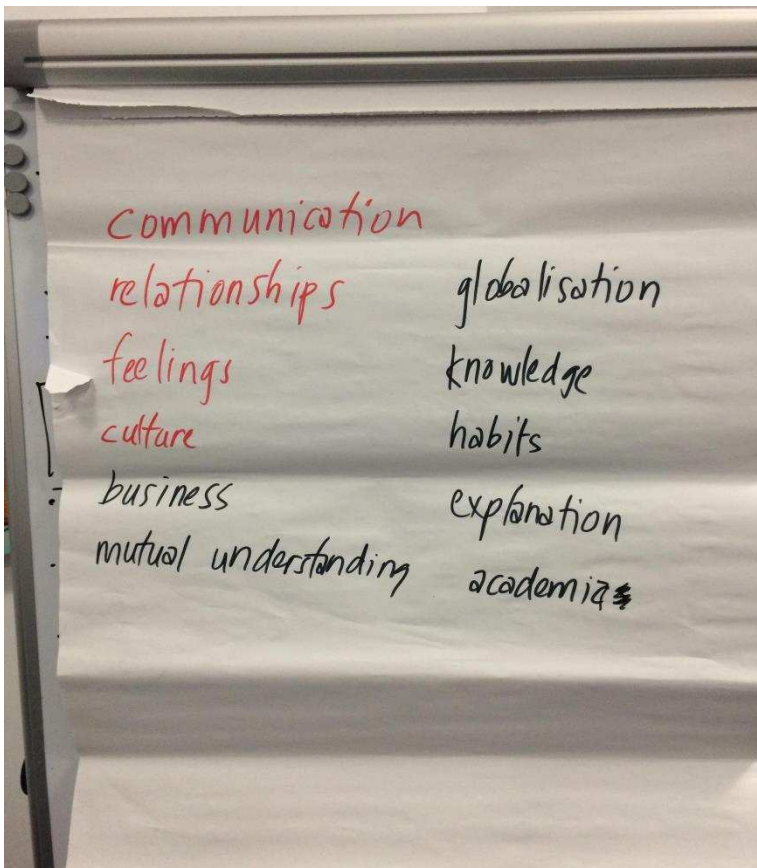 communication
relationships
feelings
culture
business
mutual understanding
globalisation
knowledge
habits
explanation
academia